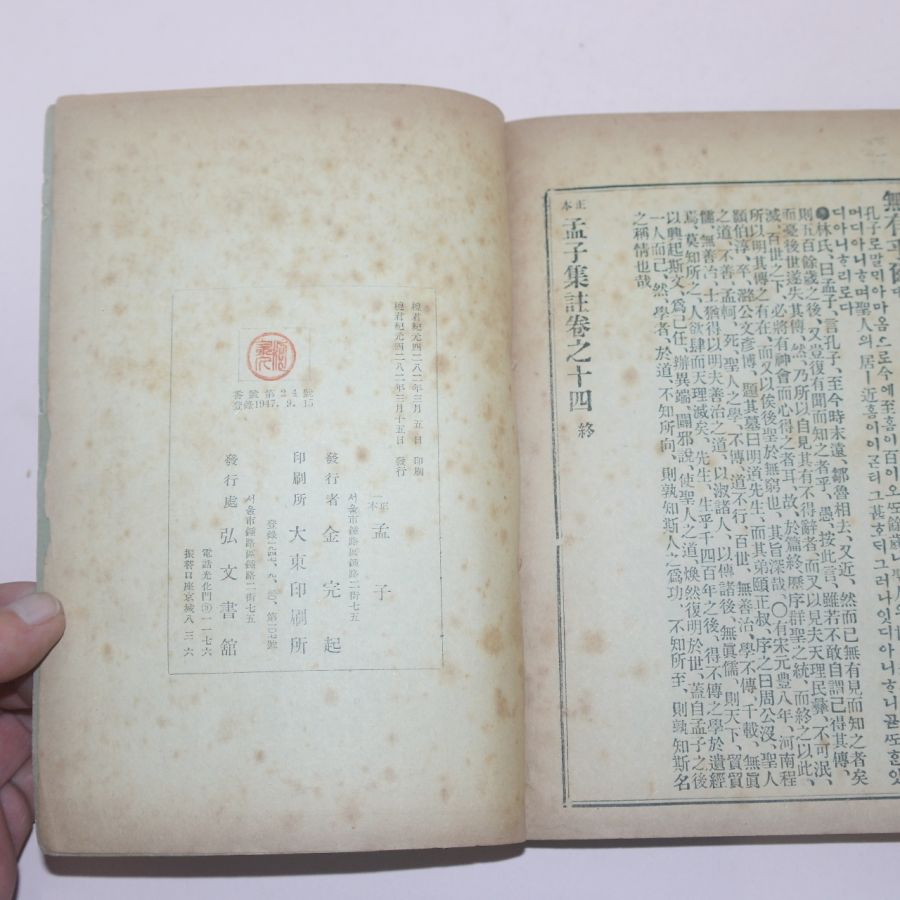 디아니ᄒᆞ리로다
林氏、曰孟子、言孔子、至今時未遠、鄒魯相去、又近、然而已無有見而知之者矣
則五百餘歲之後、又豈復有聞而知之者乎、愚、按此言、雖若不敢自謂已得其傳、
而憂後世遂失其傳、然、乃所以自見其有不得辭者、而又以見夫天理民彝、不可泯、
滅、百世之下、必將有神會而心得之者耳、故、於篇終、歷序群聖之統、而終之以此、
所以明其傳之有在、而又以俟後聖於無窮也、其旨深哉、○有宋元豐八年、河南程
顥伯淳、卒、潞公文彦博、題其墓曰明道先生、而其弟頤正叔、序之曰周公沒、聖人
之道、不行、孟軻、死、聖人之學、不傳、道不行、百世、無善治、學不傳、千載、無眞
儒、無善治、士猶得以明夫善治之道、以淑諸人、以傳諸後、無眞儒、則天下、貿貿
焉、莫知所之、人欲肆而天理滅矣、先生、生乎千四百年之後、得不傳之學於遺經
以興起斯文、爲己任、辨異端、闢邪說、使聖人之道、煥然復明於世、蓋自孟子之後
一人而已、然、學者、於道、不知所向、則孰知斯人之爲功、不知所至、則孰知斯名
之稱情也哉
正本 孟子集註卷之十四 終
檀君紀元四二八二年三月 五日 印刷
檀君紀元四二八二年三月十五日 發行
正本 孟子
서울市鍾路區鍾路二街七五
發行者 金完起
印刷所 大東印刷所
서울市鍾路區鍾路二街七五
發行處 弘文書館
電話光化門③一二七六
振替口座京城八三六
番號第24號
登錄1947.9.15